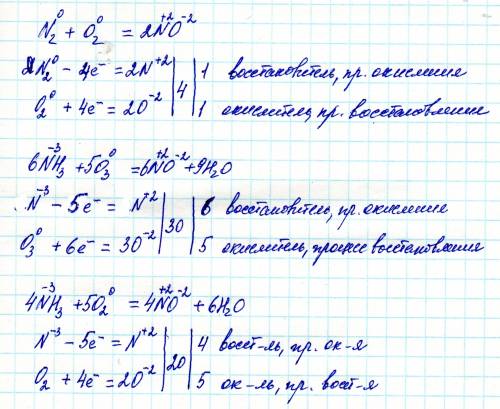 N₂⁰ + O₂⁰ = 2N⁺²O⁻²
N₂⁰ - 4e⁻ = 2N⁺² | 4 | 1 восстановитель, пр. окисление
O₂⁰ + 4e⁻ = 2O⁻² | 1 окислитель, пр. восстановление
6N⁻³H₃ + 5O₃⁰ = 6N⁺²O⁻² + 9H₂O
N⁻³ - 5e⁻ = N⁺² | 30 | 6 восстановитель, пр. окисление
O₃⁰ + 6e⁻ = 3O⁻² | 5 окислитель, процесс восстановления
4N⁻³H₃ + 5O₂⁰ = 4N⁺²O⁻² + 6H₂O
N⁻³ - 5e⁻ = N⁺² | 20 | 4 восст-ль, пр. ок-я
O₂ + 4e⁻ = 2O⁻² | 5 ок-ль, пр. восст-я